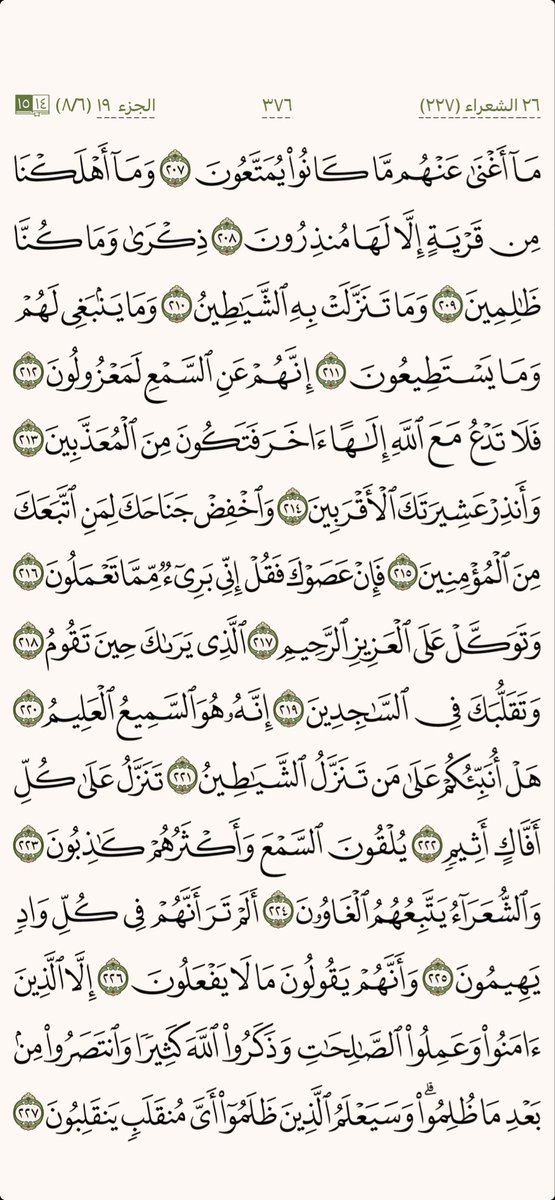 ٢٦ الشعراء (٢٢٧) ٣٧٦ الجزء ١٩ (٨/٦) ١٤ ١٥
مَآ أَغۡنَىٰ عَنۡهُم مَّا كَانُواْ يُمَتَّعُونَ ٢٠٧ وَمَآ أَهۡلَكۡنَا
مِن قَرۡيَةٍ إِلَّا لَهَا مُنذِرُونَ ٢٠٨ ذِكۡرَىٰ وَمَا كُنَّا
ظَٰلِمِينَ ٢٠٩ وَمَا تَنَزَّلَتۡ بِهِ ٱلشَّيَٰطِينُ ٢١٠ وَمَا يَنۢبَغِي لَهُمۡ
وَمَا يَسۡتَطِيعُونَ ٢١١ إِنَّهُمۡ عَنِ ٱلسَّمۡعِ لَمَعۡزُولُونَ ٢١٢
فَلَا تَدۡعُ مَعَ ٱللَّهِ إِلَٰهًا ءَاخَرَ فَتَكُونَ مِنَ ٱلۡمُعَذَّبِينَ ٢١٣
وَأَنذِرۡ عَشِيرَتَكَ ٱلۡأَقۡرَبِينَ ٢١٤ وَٱخۡفِضۡ جَنَاحَكَ لِمَنِ ٱتَّبَعَكَ
مِنَ ٱلۡمُؤۡمِنِينَ ٢١٥ فَإِنۡ عَصَوۡكَ فَقُلۡ إِنِّي بَرِيٓءٞ مِّمَّا تَعۡمَلُونَ ٢١٦
وَتَوَكَّلۡ عَلَى ٱلۡعَزِيزِ ٱلرَّحِيمِ ٢١٧ ٱلَّذِي يَرَىٰكَ حِينَ تَقُومُ ٢١٨
وَتَقَلُّبَكَ فِي ٱلسَّٰجِدِينَ ٢١٩ إِنَّهُۥ هُوَ ٱلسَّمِيعُ ٱلۡعَلِيمُ ٢٢٠
هَلۡ أُنَبِّئُكُمۡ عَلَىٰ مَن تَنَزَّلُ ٱلشَّيَٰطِينُ ٢٢١ تَنَزَّلُ عَلَىٰ كُلِّ
أَفَّاكٍ أَثِيمٖ ٢٢٢ يُلۡقُونَ ٱلسَّمۡعَ وَأَكۡثَرُهُمۡ كَٰذِبُونَ ٢٢٣
وَٱلشُّعَرَآءُ يَتَّبِعُهُمُ ٱلۡغَاوُۥنَ ٢٢٤ أَلَمۡ تَرَ أَنَّهُمۡ فِي كُلِّ وَادٖ
يَهِيمُونَ ٢٢٥ وَأَنَّهُمۡ يَقُولُونَ مَا لَا يَفۡعَلُونَ ٢٢٦ إِلَّا ٱلَّذِينَ
ءَامَنُواْ وَعَمِلُواْ ٱلصَّٰلِحَٰتِ وَذَكَرُواْ ٱللَّهَ كَثِيرٗا وَٱنتَصَرُواْ مِنۢ
بَعۡدِ مَا ظُلِمُواْۗ وَسَيَعۡلَمُ ٱلَّذِينَ ظَلَمُوٓاْ أَيَّ مُنقَلَبٖ يَنقَلِبُونَ ٢٢٧